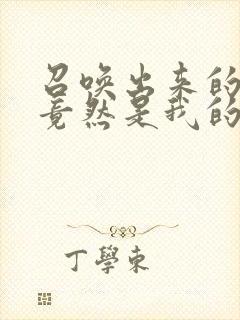 召唤出来的
竟然是我的
丁學東